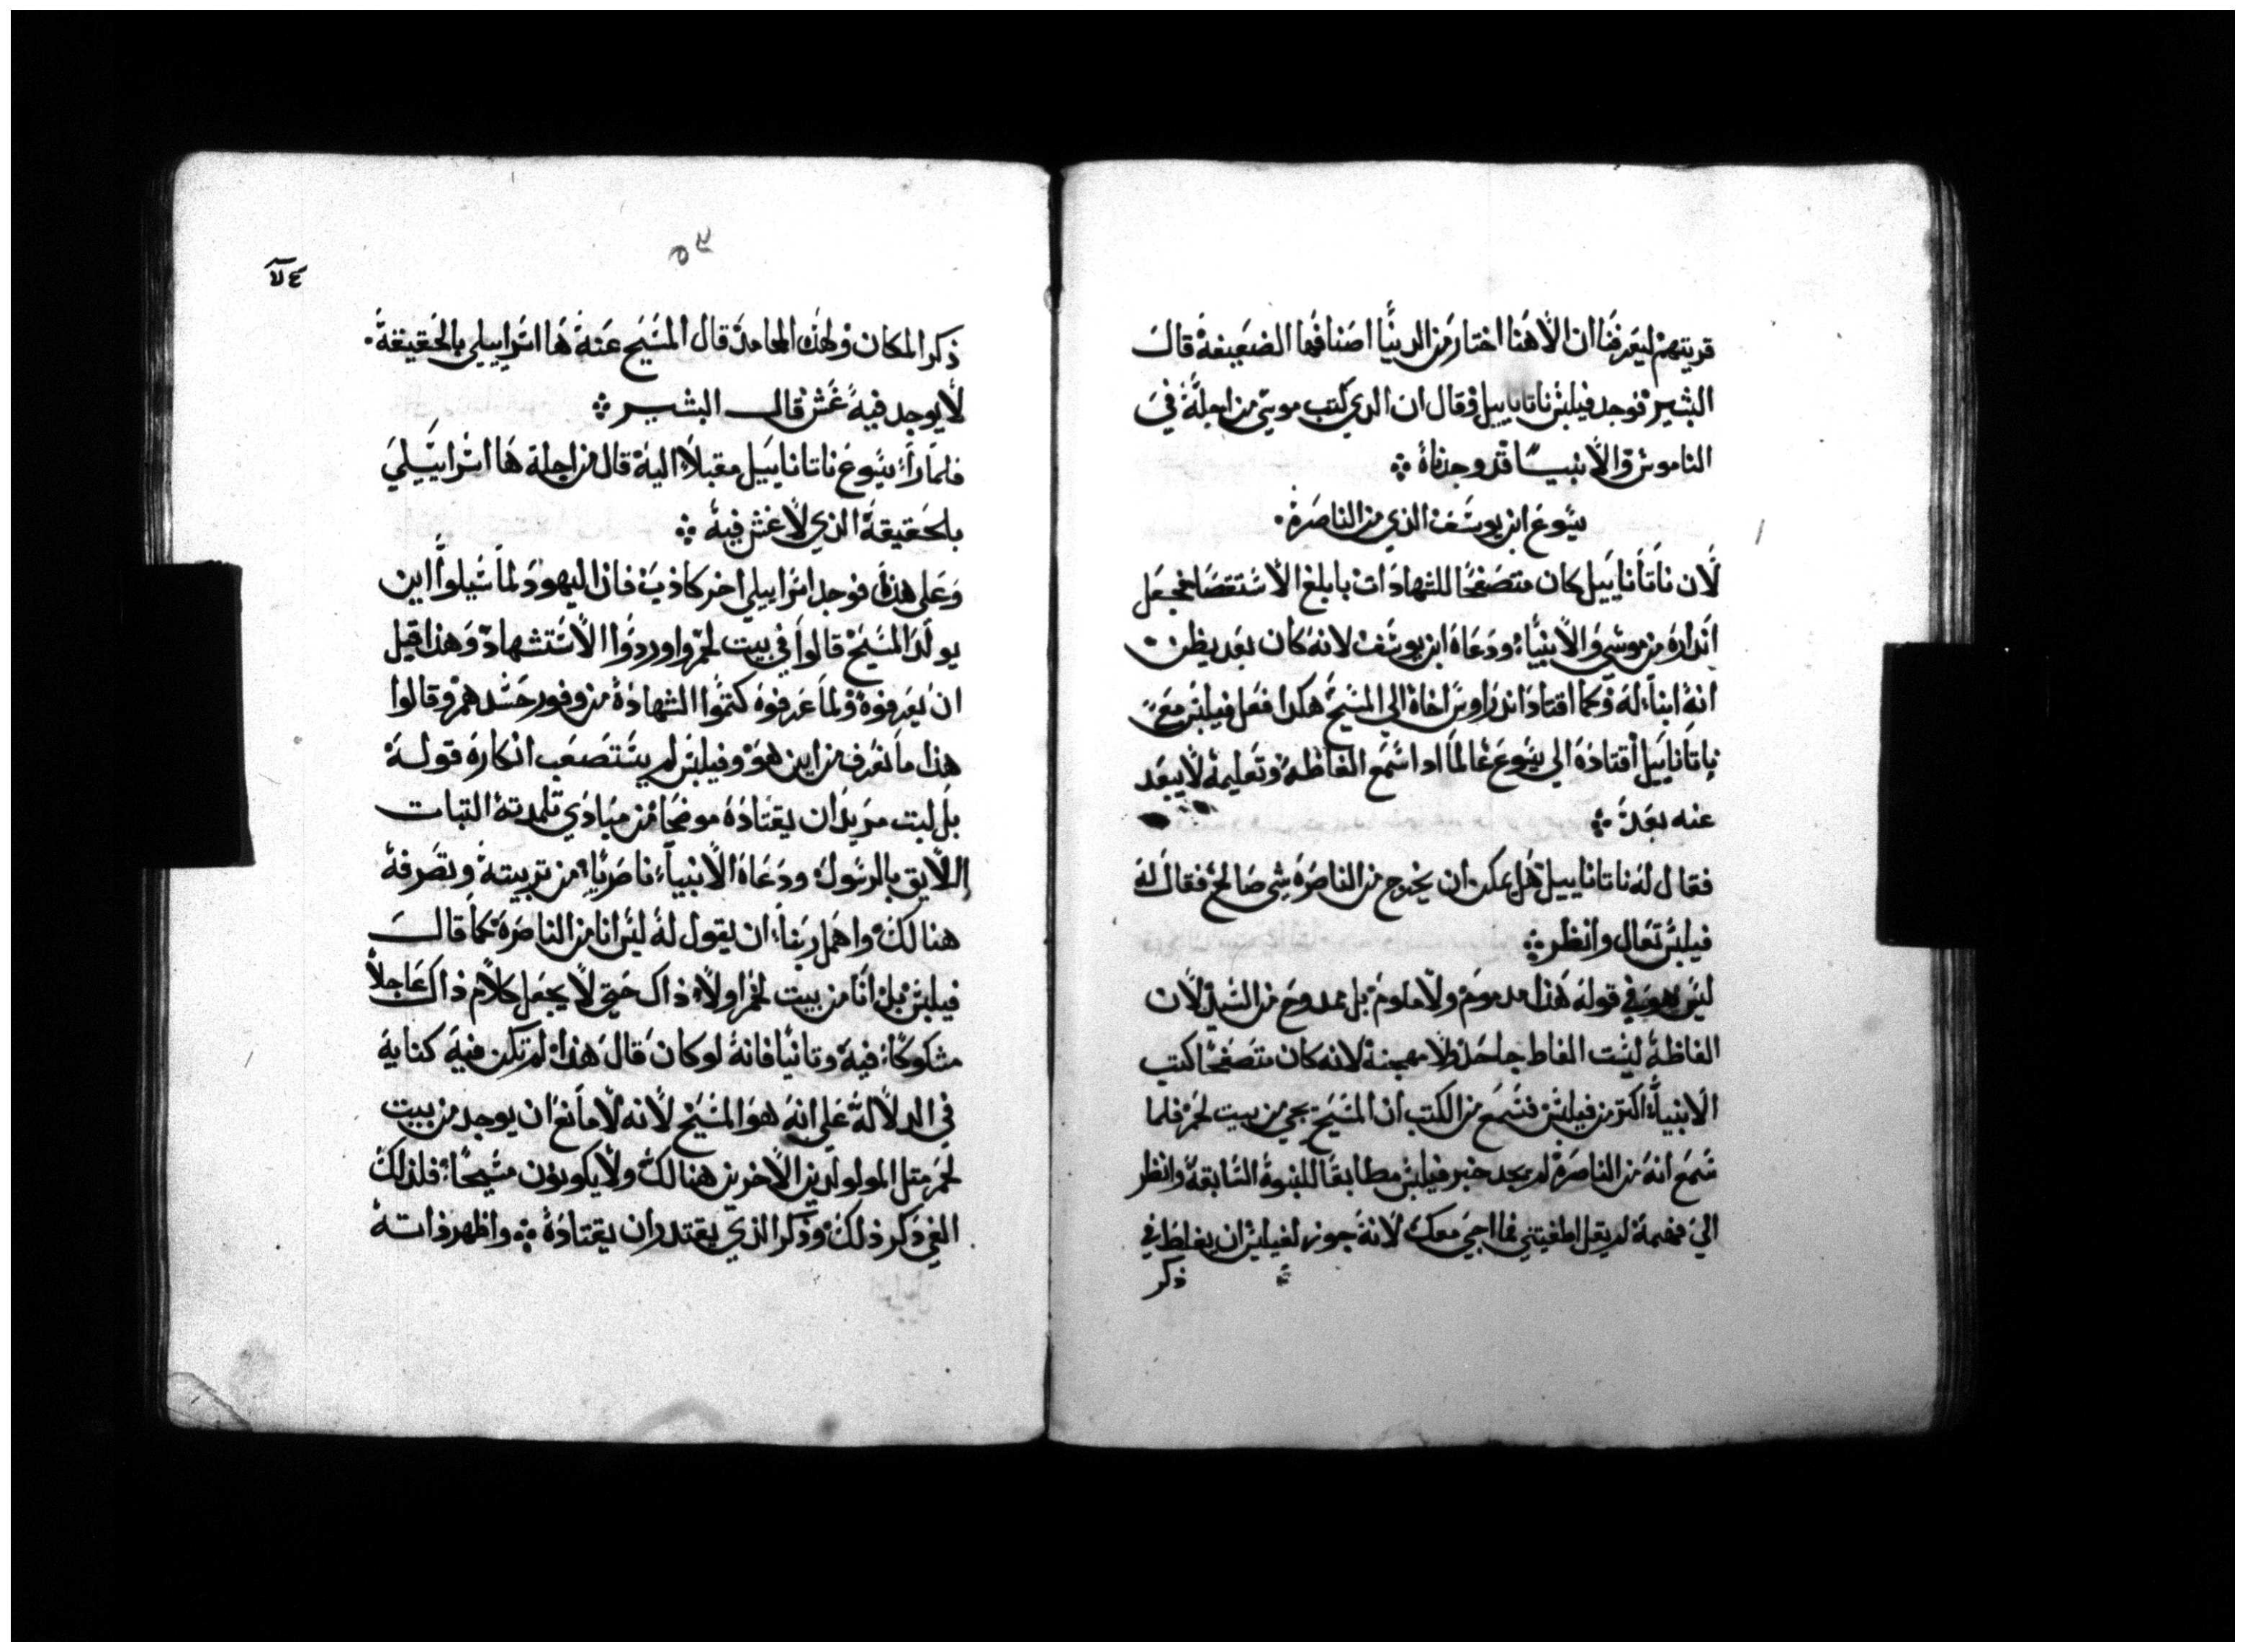 قريتهم ليعرفنا ان الاهنا اختار من الدنيا اصنافها الضعيفة قال
البشير فوجد فيلبس ناتاناييل وقال ان الدي كتب موسي من اجله في
الناموس والانبيا قد وجدناه ⁘
يسوع ابن يوسف الذي من الناصرة.
لان ناتاناييل كان متصفحا للشهادات بابلغ الاستقصا فجعل
انداره من موسي والانبياء ودعاه ابن يوسف لانه كان بعد يظن
انه ابناء له وكما اقتاد اندراوس اخاه الي المسيح هكدا فعل فيلبس مع
ناتاناييل اقتاده الي يسوع عالما ادا اسمع الفاظه وتعليمه لا يبعد
عنه بعد ⁘
فقال له ناتاناييل هل يمكن ان يخرج من الناصره شي صالح فقال له
فيلبس تعال وانظر ⁘
ليس هو في قوله هذا مدموم ولا ملوم بل ممدوح من السيد لان
الفاظه ليست الفاظ جاحد ولا مهجنة لانه كان متصفحا كتب
الانبياء اكتر من فيلبس فسمع من الكتب ان المسيح يجي من بيت لحم فلما
سمع انه من الناصرة لم يجد خبر فيلبس مطابقا للنبوة السابقة وانظر
الي فهمه لم يقل اطغيتني فما اجي معك لانه جوز لفيلبس ان يغلط في
ذكر
٥٤
٧٤
ذكر المكان ولهذه المحامد قال المسيح عنه ها اسراييلي بالحقيقة.
لا يوجد فيه غش قال البشير ⁘
فلما راء يسوع ناتاناييل مقبلا اليه قال من اجله ها اسراييلي
بلحقيقة الذي لا غش فيه ⁘
وعلي هذا فوجد اسراييلي اخر كاذب فان اليهود لما سيلوا اين
يولد المسيح قالوا في بيت لحم واوردوا الاستشهاد وهذا قيل
ان يعرفوه ولما عرفوه كتموا الشهادة من وفور حسدهم وقالوا
هذا ما نعرف من اين هو وفيلبس لم يستصعب انكاره قوله
بل لبت مريدا ان يقتاده موضحا من مبادي تلمدته التبات
اللايق بالرسول ودعاه الانبياء ناصريا من تربيته وتصرفه
هنالك واهمل ربنا ان يقول له ليس انا من الناصرة كما قال
فيلبس بل انا من بيت لحم اولا ذاك حتي لا يجعل كلام ذاك عاجلا
مشكوكا فيه وتانيا فانه لو كان قال هذا لم تكن فيه كناية
في الدلالة علي انه هو المسيح لانه لا مانع ان يوجد من بيت
لحم متل المولولدين الاخرين هنالك ولا يكونون مسيحا فلذلك
الغي ذكر ذلك وذكر الذي يقتدر ان يقتاده ⁘ واظهر ذاته